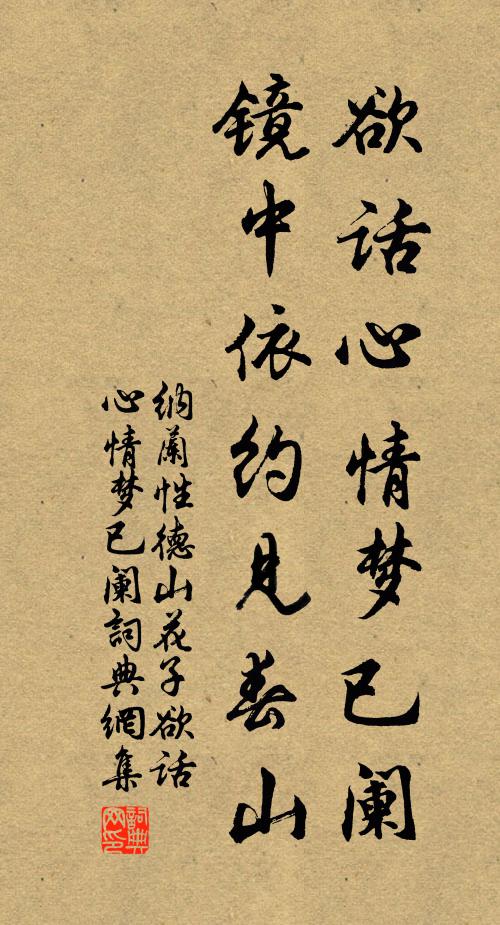 欲话心情梦已阑
镜中依约见春山
纳兰性德山花子欲话
心情梦已阑詞典網集
詞典网印